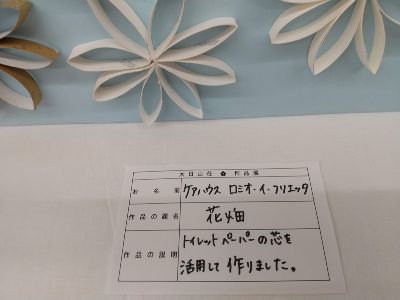 大日山荘 ✿ 作品展
お名前 ケアハウス ロミオ・イ・フリエッタ
作品の題名 花畑
作品の説明 トイレットペーパーの芯を
活用して作りました。